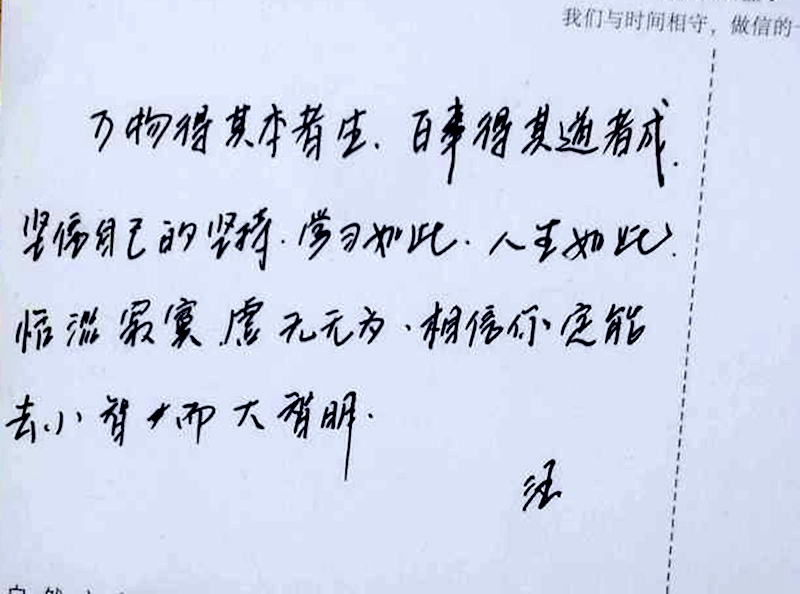 我们与时间相守，做信的一
万物得其本者生、百事得其道者成.
坚信自己的坚持.学习如此.人生如此.
恬淡寂寞.虚无无为、相信你定能
去小智 而大智明.
汪
自然